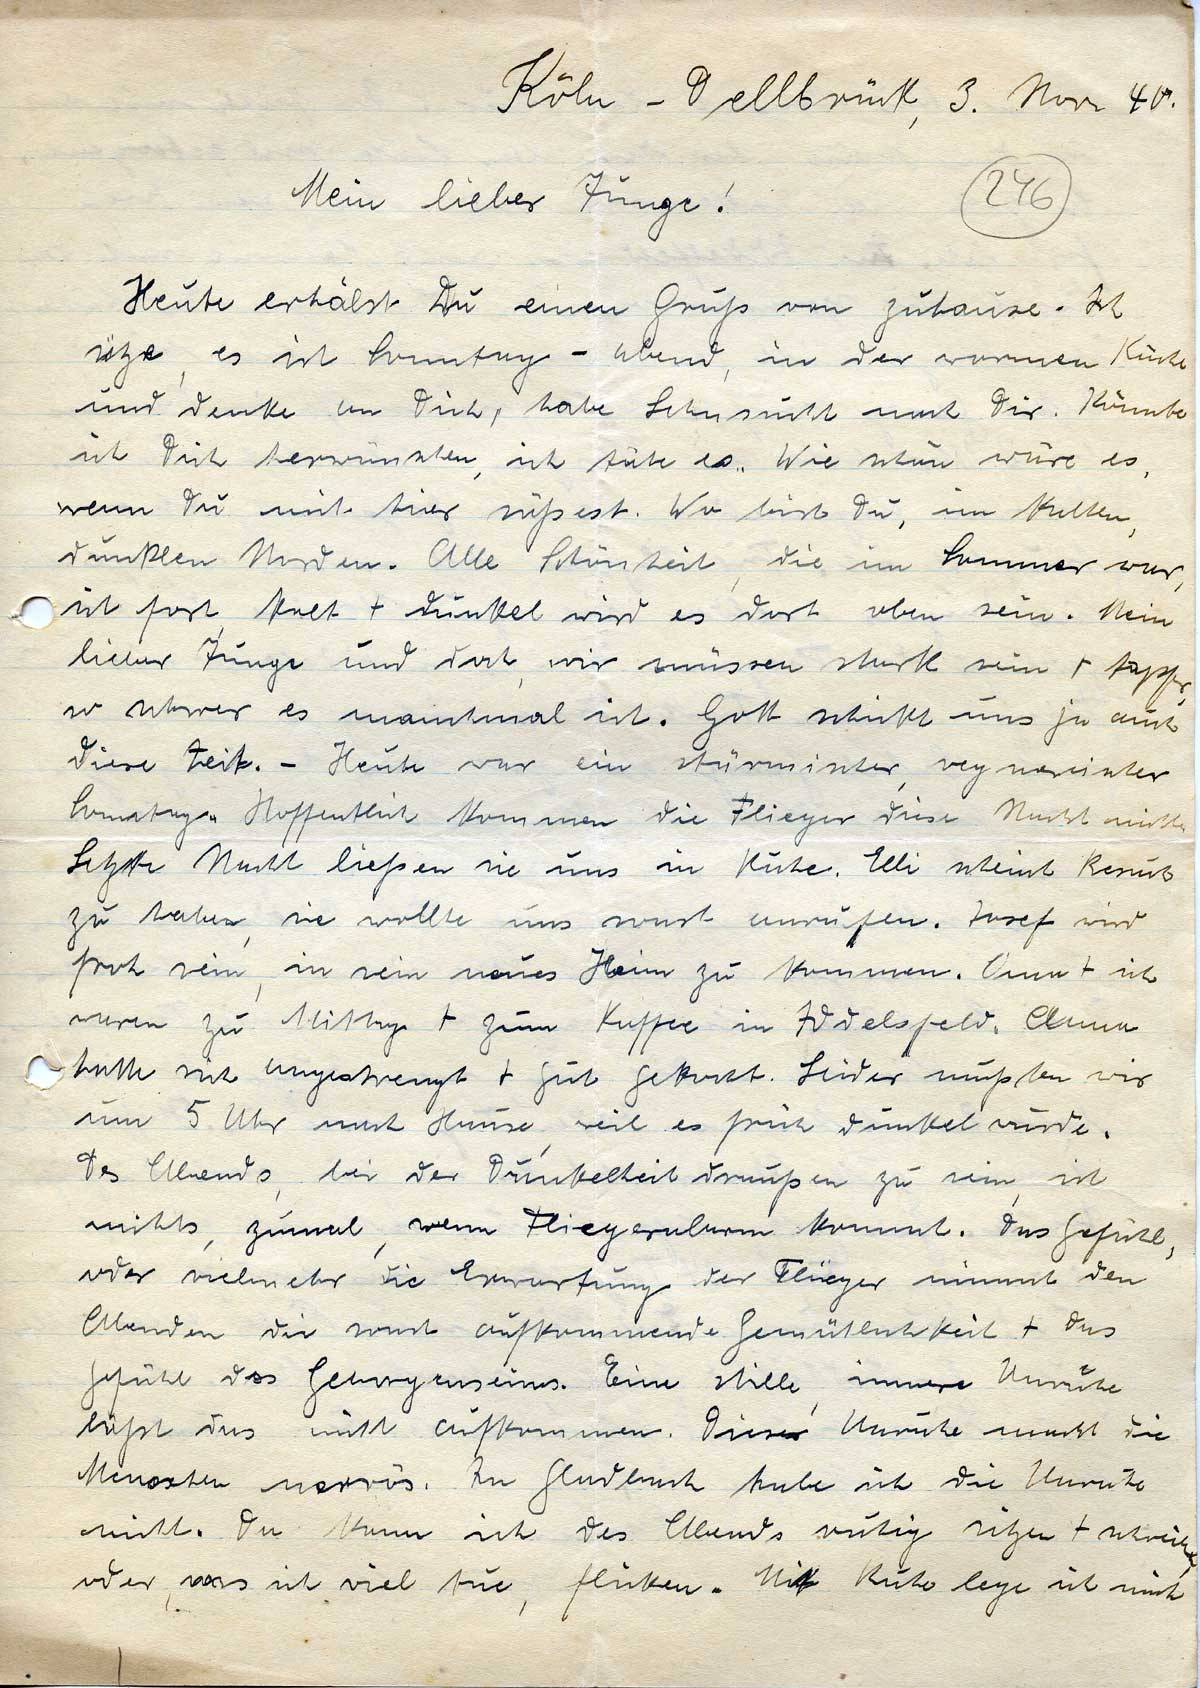 Köln - Dellbrück, 3. Nov. 40.
Mein lieber Junge!
246
Heute erhälst Du einen Gruß von zuhause. Ich
sitze, es ist Sonntag - abend, in der warmen Küche
und denke an Dich, habe Sehnsucht nach Dir. Könnte
ich Dich herwünschen, ich täte es. Wie schön wäre es,
wenn Du mit hier säßest. Wo bist Du, im kalten,
dunklen Norden. Alle Schönheit, die im Sommer war,
ist fort, kalt + dunkel wird es dort oben sein. Mein
lieber Junge und doch, wir müssen stark sein + tapfer,
so schwer es manchmal ist. Gott schickt uns ja auch
diese Zeit. - Heute war ein stürmischer, regnerischer
Sonntag. Hoffentlich kommen die Flieger diese Nacht nicht.
Letzte Nacht ließen sie uns in Ruhe. Elli scheint Besuch
zu haben, sie wollte uns sonst anrufen. Josef wird
froh sein, in sein neues Heim zu kommen. Oma + ich
waren zu Mittag + zum Kaffee in Iddelsfeld. Anna
hatte sich angestrengt + gut gekocht. Leider mußten wir
um 5 Uhr nach Hause, weil es früh dunkel wurde.
Des Abends, bei der Dunkelheit draußen zu sein, ist
nichts, zumal, wenn Fliegeralarm kommt. Das Gefühl,
oder vielmehr die Erwartung der Flieger nimmt den
Abenden die sonst aufkommende Gemütlichkeit + das
Gefühl des Geborgenseins. Eine stille, innere Unruhe
läßt das nicht aufkommen. Diese Unruhe macht die
Menschen nervös. In Gladbach habe ich die Unruhe
nicht. Da kann ich des Abends ruhig sitzen + schreiben
oder, was ich viel tue, flicken. Mit Ruhe lege ich mich